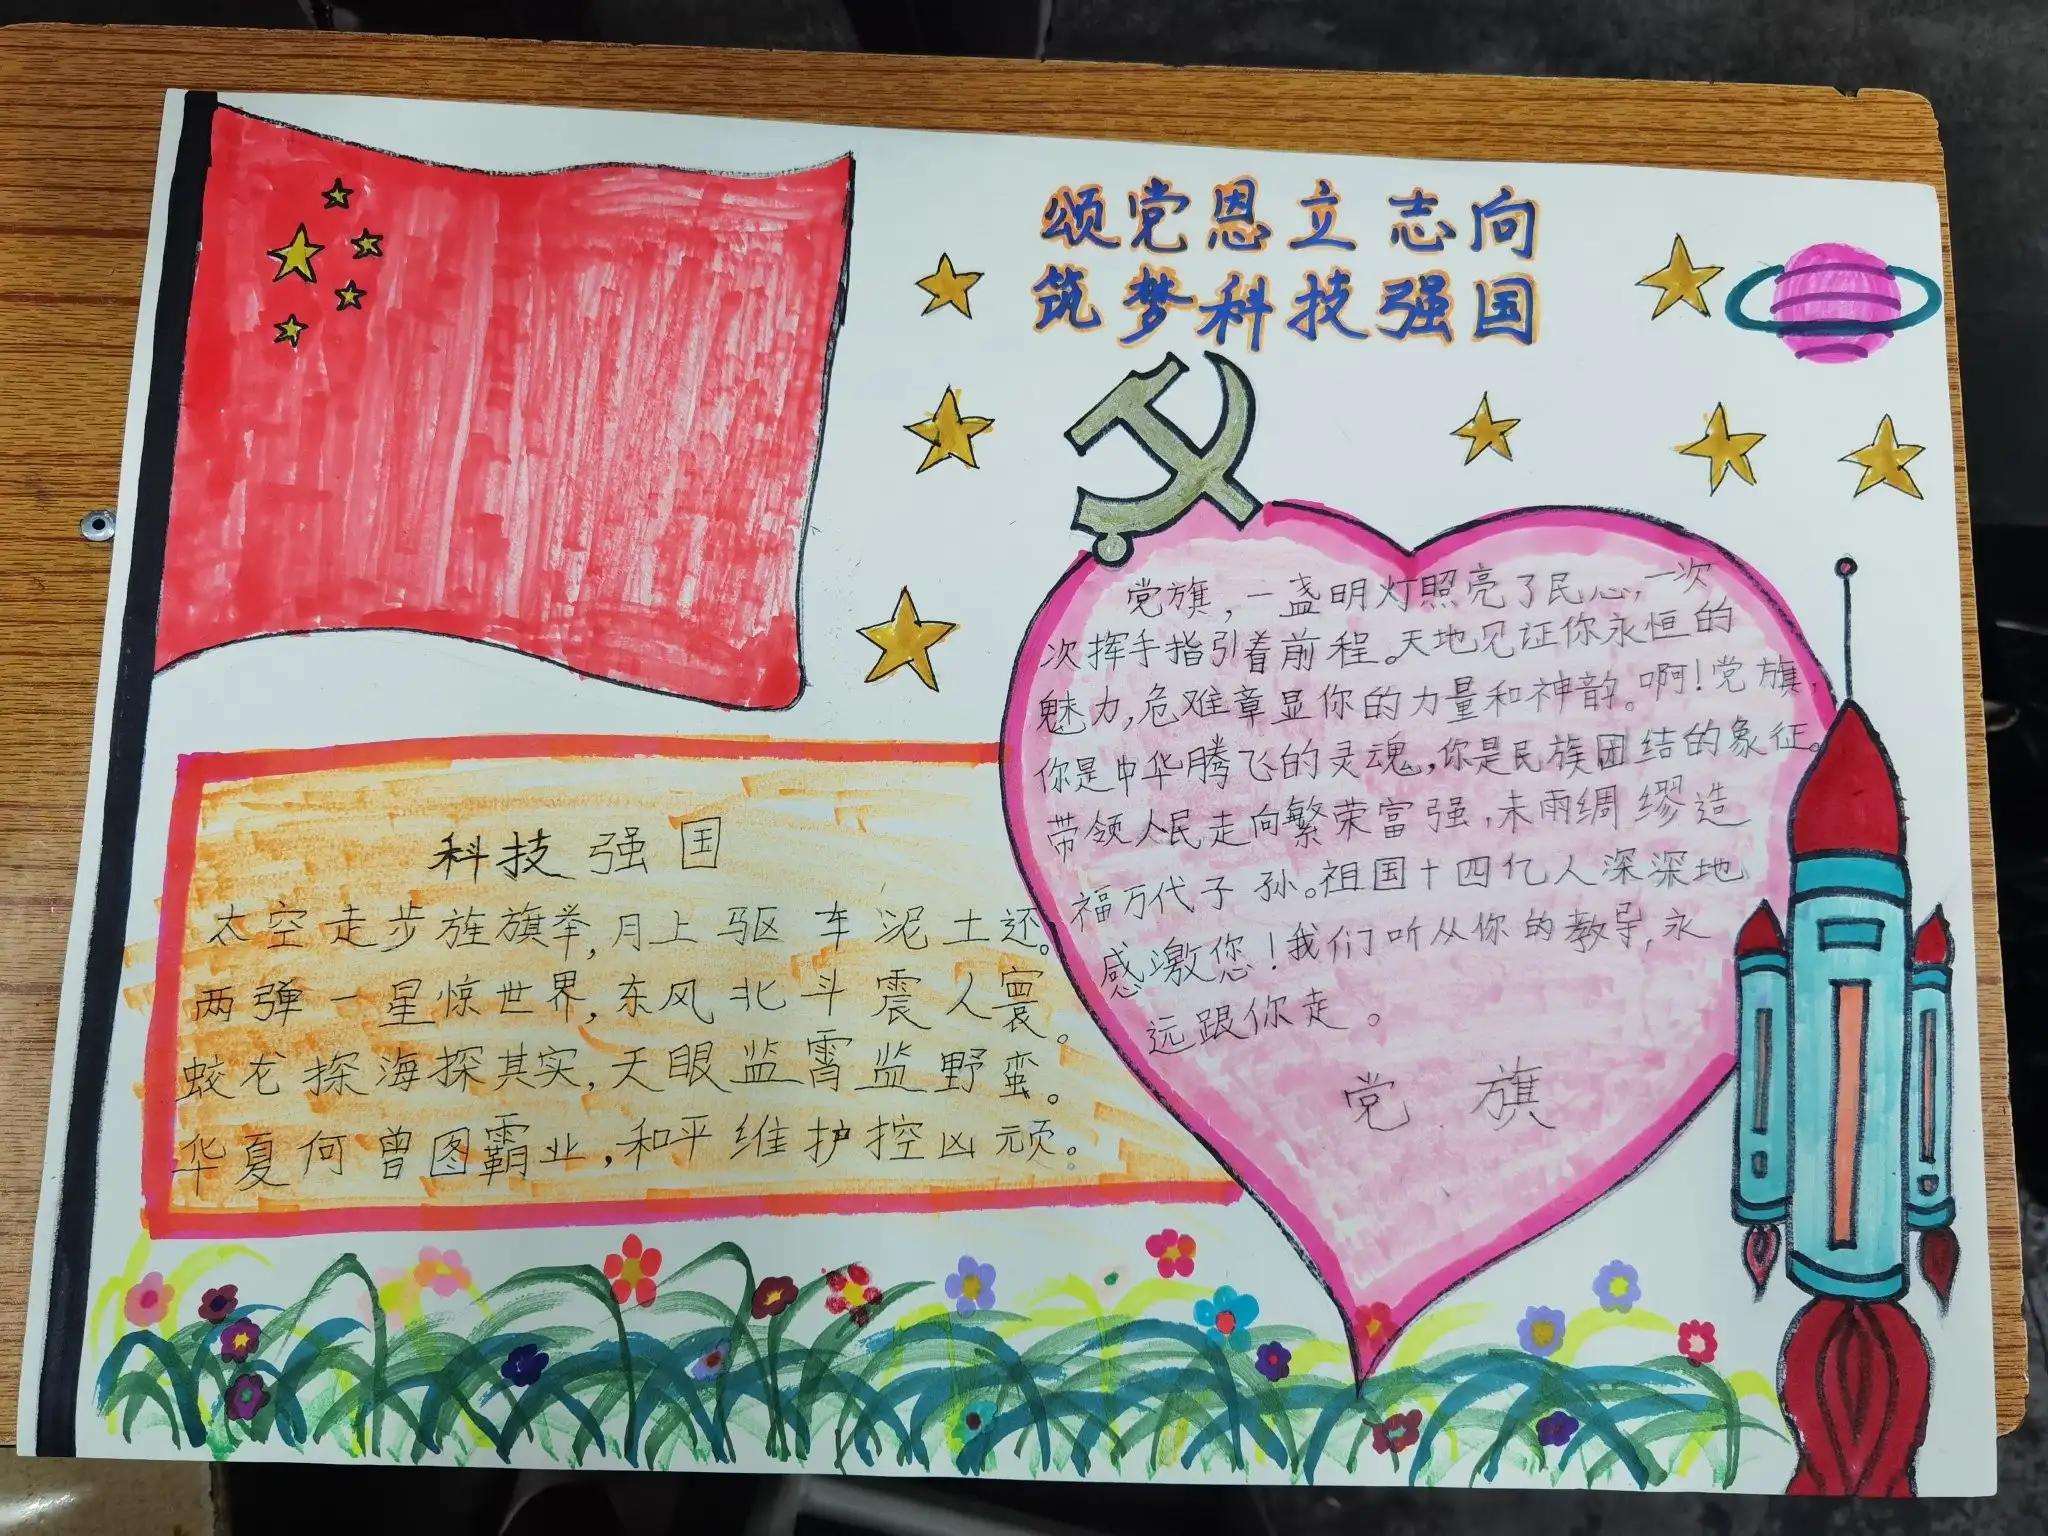 颂党恩立志向
筑梦科技强国
科技强国
太空走步旌旗举,月上驱车泥土还。
两弹一星惊世界,东风北斗震人寰。
蛟龙探海探其实,天眼监霄监野蛮。
华夏何曾图霸业,和平维护控凶顽。
党旗,一盏明灯照亮了民心,一次
次挥手指引着前程。天地见证你永恒的
魅力,危难章显你的力量和神韵。啊!党旗,
你是中华腾飞的灵魂,你是民族团结的象征。
带领人民走向繁荣富强,未雨绸缪造
福万代子孙。祖国十四亿人深深地
感激您!我们听从你的教导,永
远跟你走。
党旗